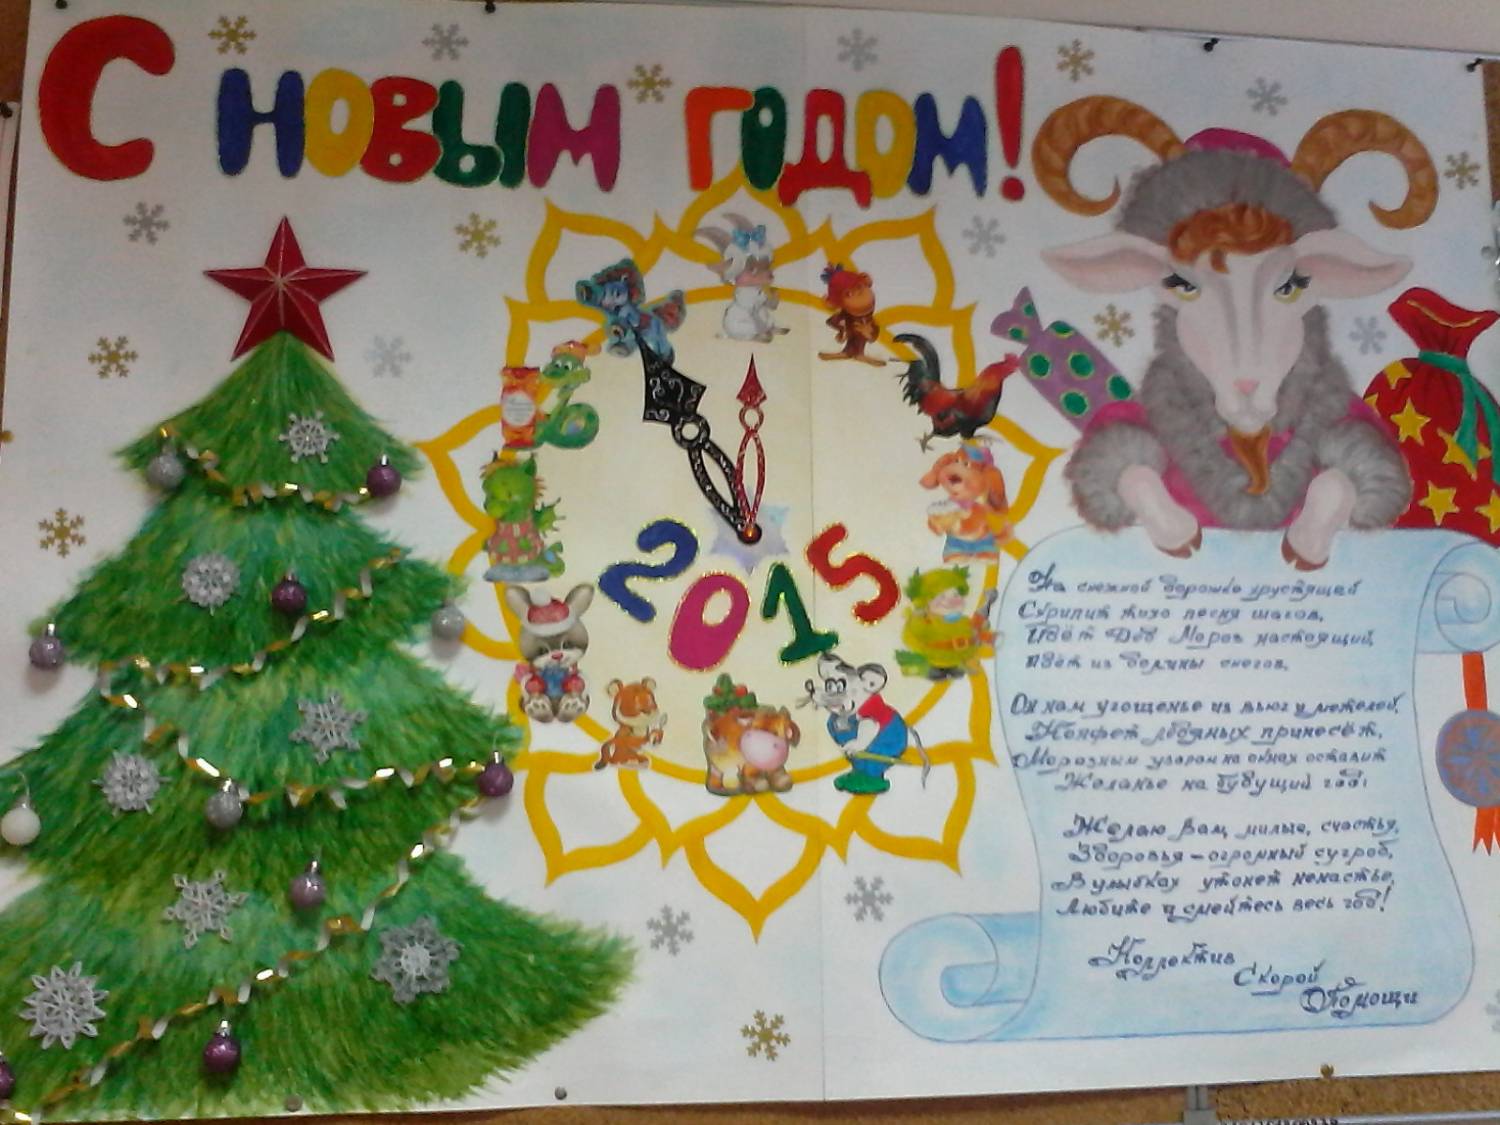 С НОВЫМ ГОДОМ!
2015
На снежной дорожке хрустящей
Скрипит тихо песня шагов,
Идёт Дед Мороз настоящий
Идёт из долины снегов.
Он нам угощенье из вьюг и метелей,
Конфет ледяных принесёт,
Морозным узором на окнах оставит
Желанье на будущий год!
Желаю Вам, милые, счастья,
Здоровья – огромный сугроб,
В улыбках утонет ненастье,
Любите и смейтесь весь год!
Коллектив
Скорой
Помощи